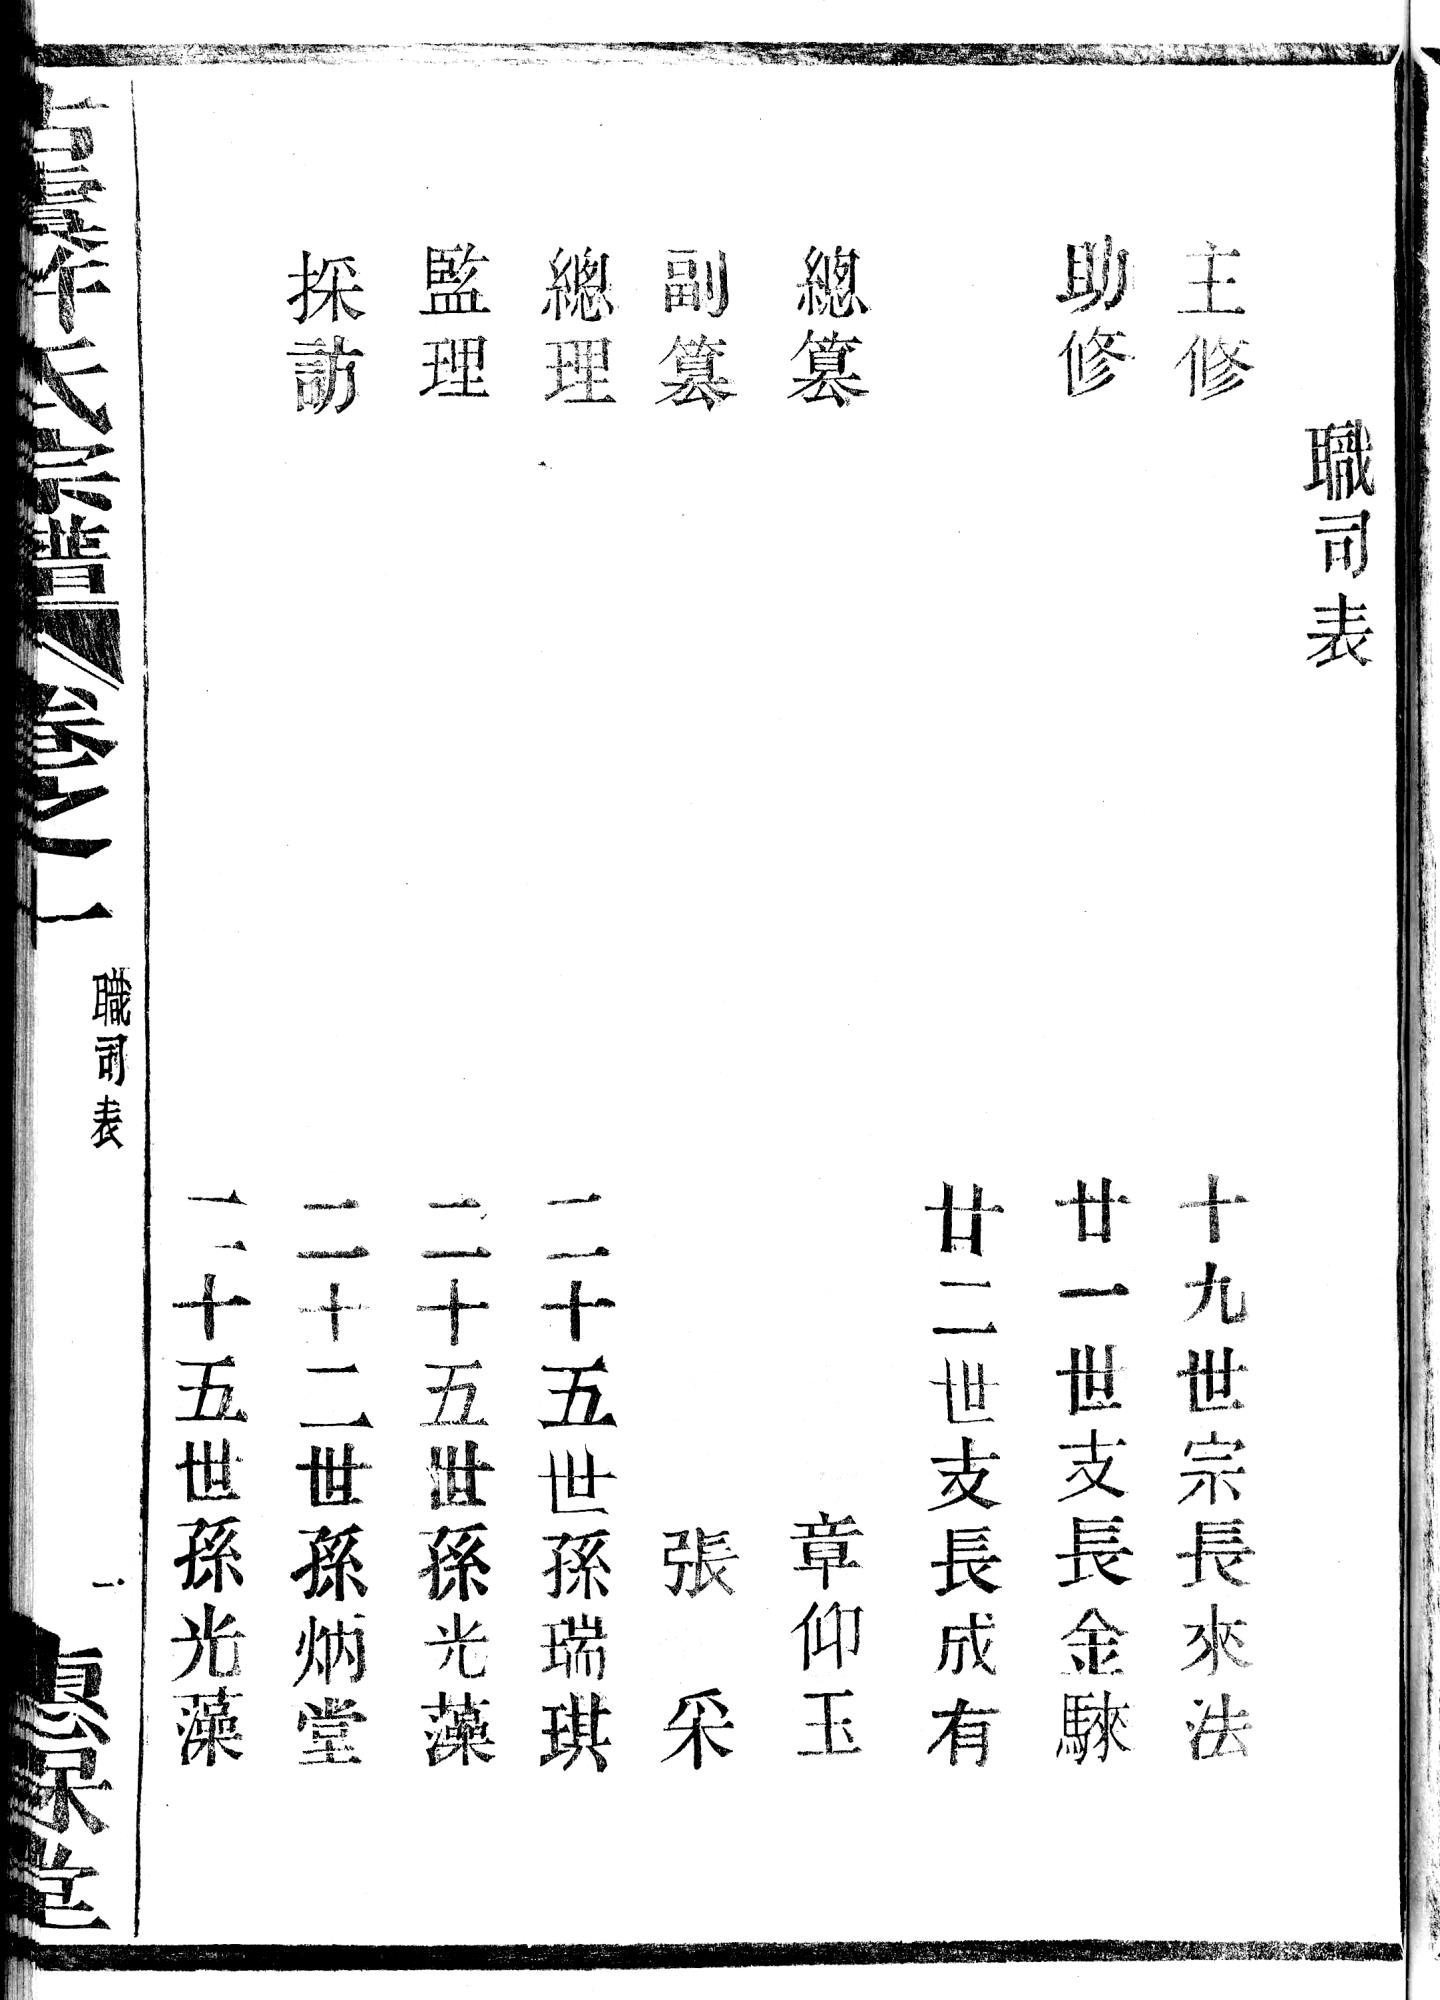 職司表
主修 十九世宗長來法
助修 廿一世支長金騋
廿二世支長成有
總篡 章仰玉
副篡 張 采
總理 二十五世孫瑞琪
監理 二十五世孫光藻
採訪 二十二世孫炳堂
二十五世孫光藻
氏宗譜 卷之一
職司表
一
堂